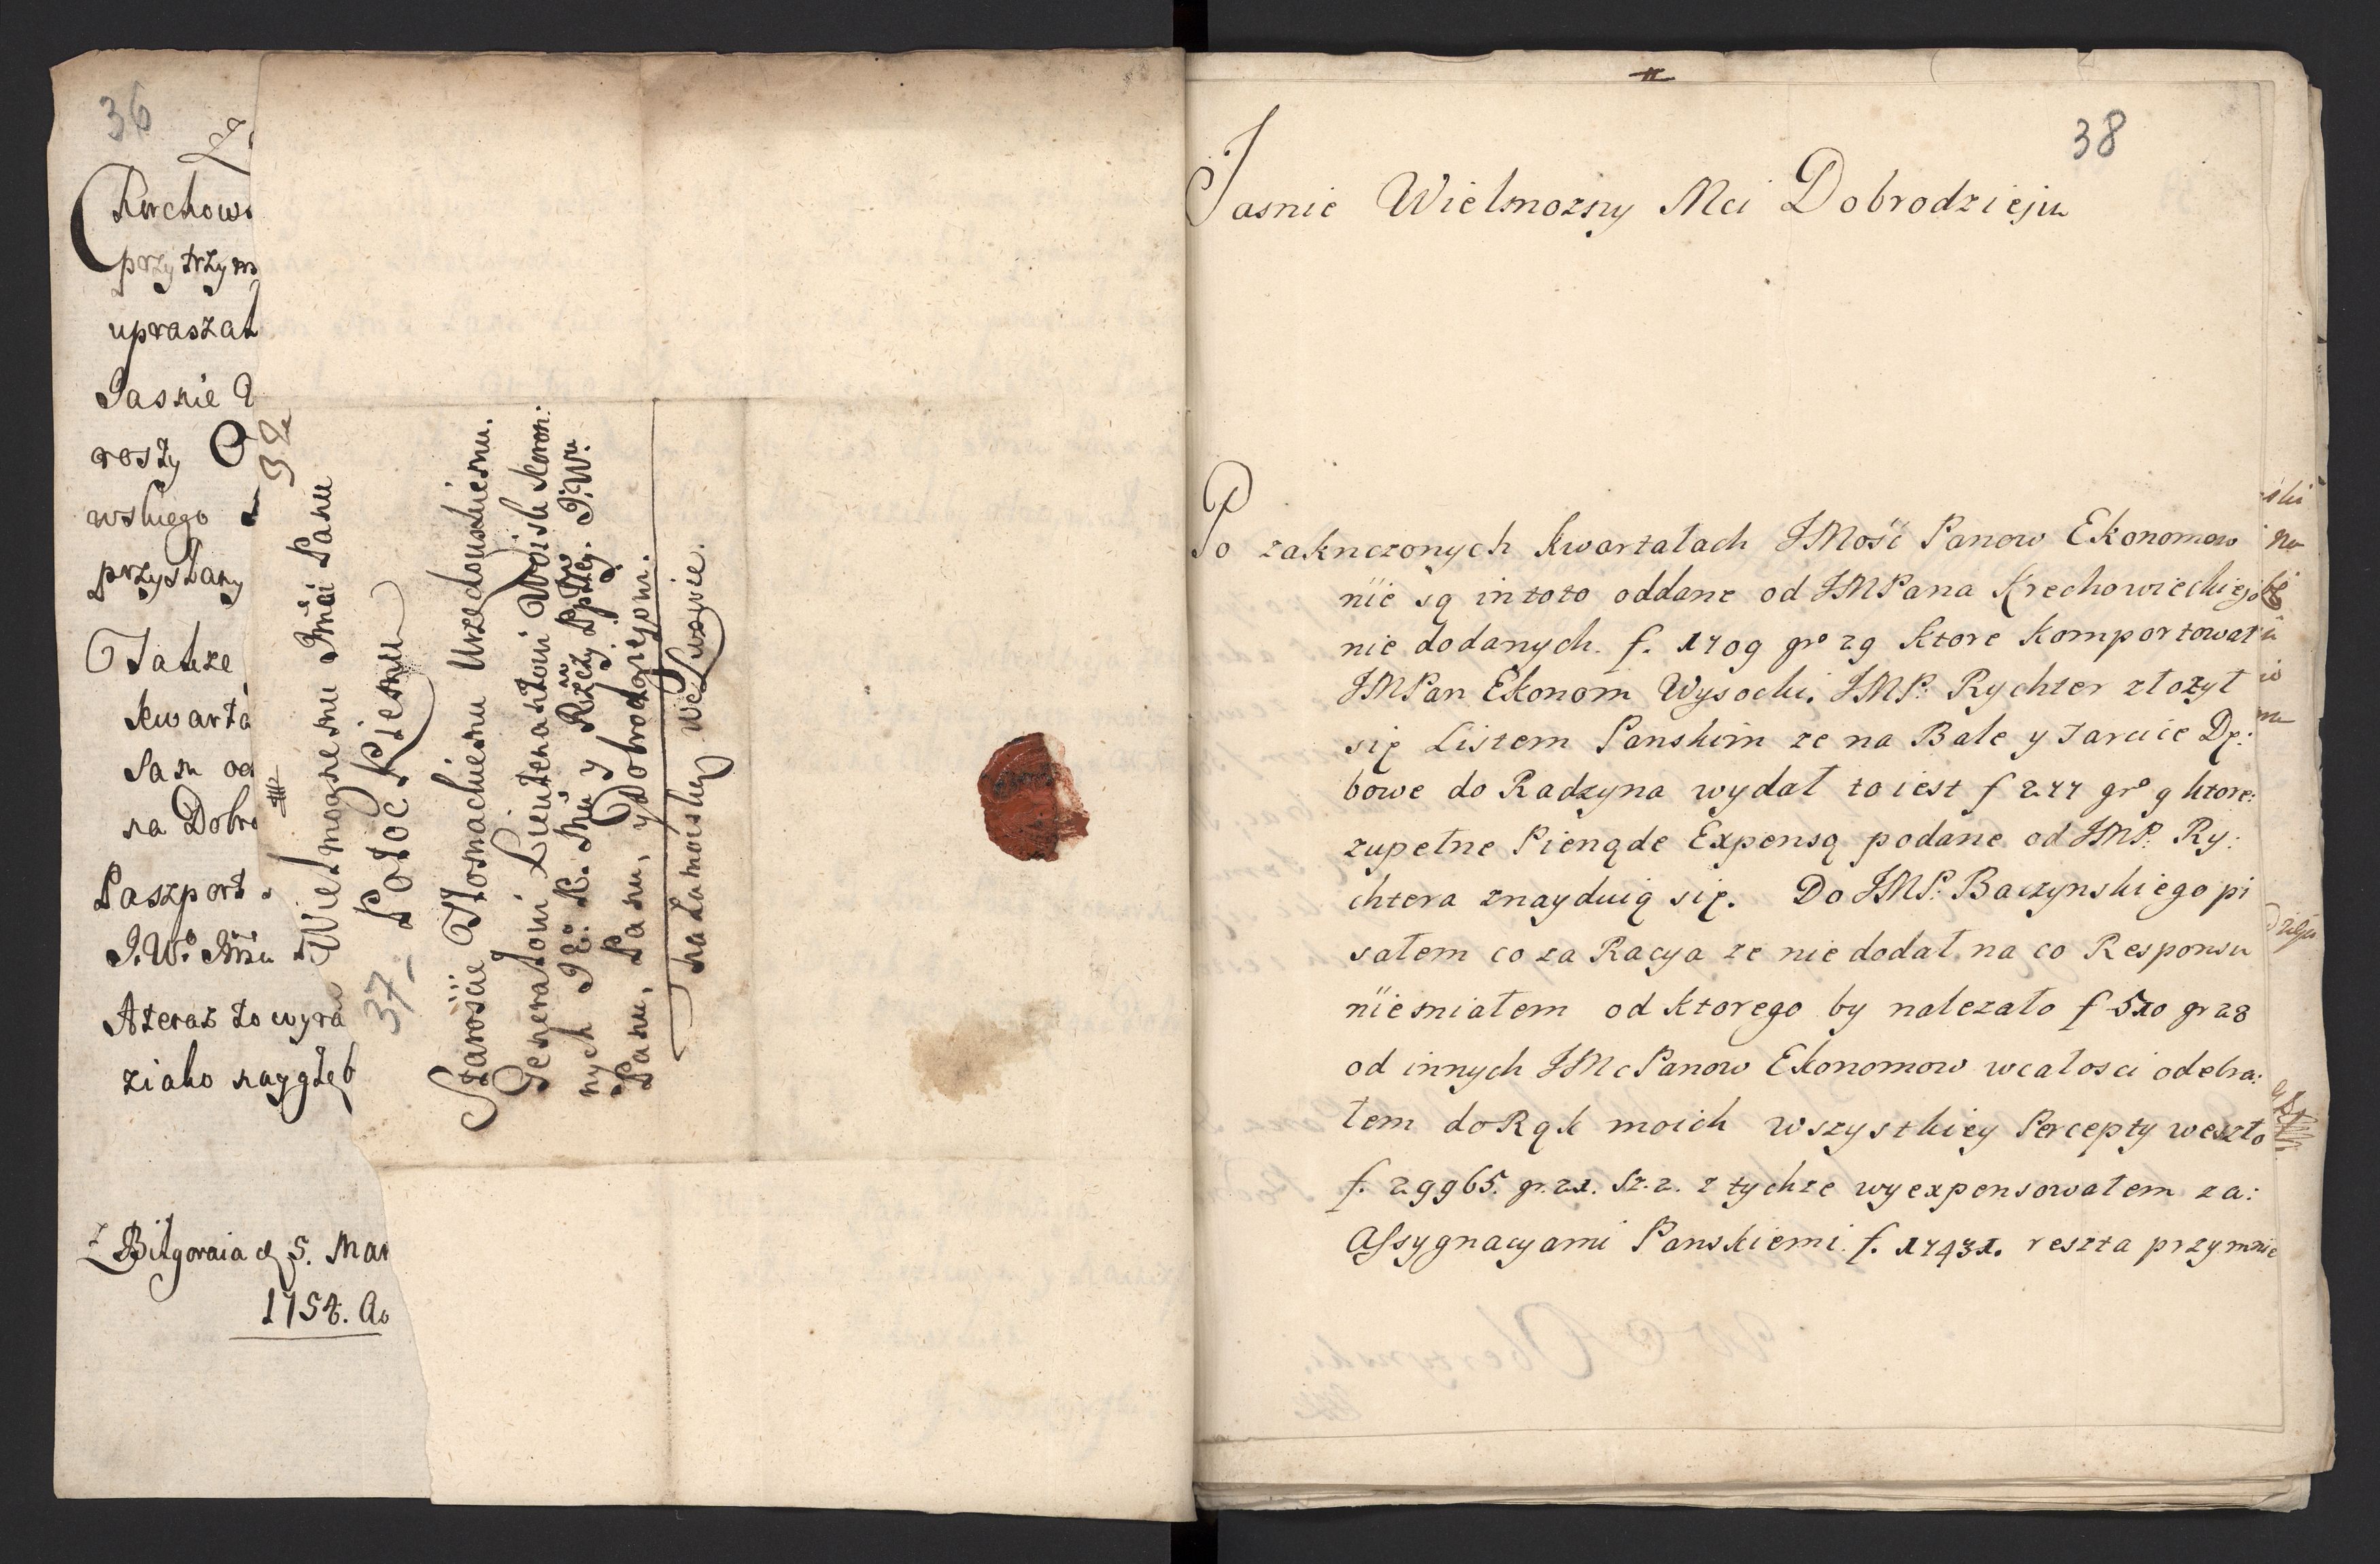 36
Kirchows
przytrzym
upraszah
Jasnie
roszy
wskiego
przysłany
Takze
kwarta
Sam od
na Dobro
Paszport
J.Wo Jmsci
A teraz to wyra
ziako naygłęb
z Biłgoraia d 5. Mar
1754. Ao
32
Wielmoznemu Jmci Panu
Potockiemu
37
Staroscie Tłomackiemu Urzedowskiemu.
Generałowi Lieutenantowi Woisk Koron:
nych JE. K. Mci y Rzczy Pptey. J.W.
Panu, Panu, y Dobrodzieiowi.
na Zamoiskey we Lwowie.
38
Jasnie Wielmozny Mci Dobrodzieju
Po zaknczonych kwartałach JMość Panow Ekonomow
nie są in toto oddane od JMPana Krechowieckiego
nie dodanych. f. 1709 gro 29 ktore komportował
JMPan Ekonom Wysocki. JMP: Rychter złożył
się Listem Panskim ze na Bale y Tarcice Dę:
bowe do Radzyna wydał to iest f 277 gro 9 ktore:
zupełne Pienąde Expensą podane od JMP: Ry:
chtera znayduią się. Do JMP: Baczynskiego pi
sałem co za Racya ze nie dodał na co Responsu
niemiałem od ktorego by nalezało f 510 gr 28
od innych JMc Panow Ekonomow wcałosci odebra:
łem do Rąk moich wszystkiey Percepty weszło
f. 29965. gr. 21. Sz. 2. z tychze wyexpensowałem za:
Assygnacyami Panskiemi. f. 17431. reszta przymnie